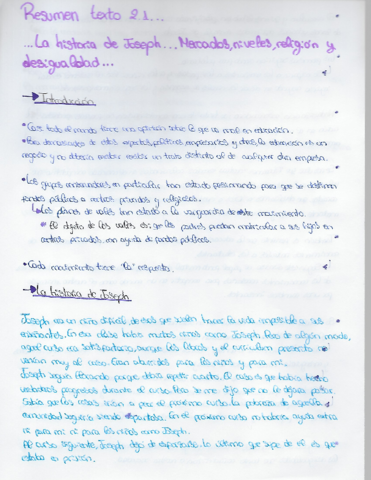 Resumen texto 2.1...
...La historia de Joseph... Mercados, niveles, religión y
desigualdad...
Introducción
Casi todo el mundo tiene una opinión sobre lo que va mal en educación.
Para demasiados de estos expertos, políticos, empresarios y otros, la educación es un
negocio y no debería recibir un trato distinto al de cualquier otra empresa.
Los grupos conservadores en particular han estado presionando para que se destinen
fondos públicos a centros privados y religiosos.
Los planes de vales han estado a la vanguardia de este movimiento.
El objetivo de los vales es: que los padres puedan matricular a sus hijos en
centros privados con ayuda de fondos públicos.
Cada movimiento tiene "la" respuesta.
La historia de Joseph
Joseph era un niño difícil, de esos que suelen hacer la vida imposible a sus
maestros. En esa clase había muchos niños como Joseph. Pero de algún modo,
aquel curso era satisfactorio, aunque los libros y el currículum
venían muy al caso. Eran años para los niños y para mí.
Joseph seguía llorando porque debía repetir curso. El caso es que había hecho
verdaderos progresos durante el curso. Pero se me dijo que no le dejara pasar.
Sabía que las cosas irían a peor el próximo curso. La pobreza de aquella
comunidad seguiría siendo espantosa. En el próximo curso no habría ayuda extra
ni para mí ni para los niños como Joseph.
Al curso siguiente, Joseph dejó de esforzarse. Lo último que supe de él es que
estaba en prisión.